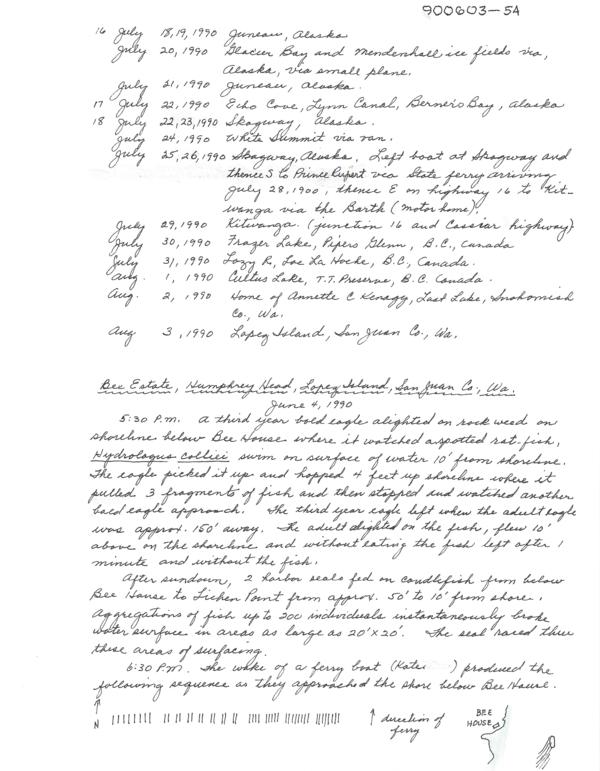 900603-54
16 July 18,19,1990 Juneau, Alaska
July 20,1990 Glacier Bay and Mendenhall ice fields via,
Alaska, via small plane.
July 21,1990 Juneau, Alaska.
17 July 22,1990 Echo Cove, Lynn Canal, Berners Bay, Alaska
18 July 22,23,1990 Skagway, Alaska.
July 24,1990 White Summit via van.
July 25,26,1990 Skagway, Alaska. Left boat at Skagway and
thence S to Prince Rupert via State ferry arriving
July 28,1900, thence E on highway 16 to Kit-
wanga via the Barth (motor home).
July 29,1990 Kitwanga. (junction 16 and Cassiar highway).
July 30,1990 Frazer Lake, Pipers Glenn, B.C., Canada
July 31,1990 Lazy R, Lac La Hache, B.C., Canada.
Aug. 1, 1990 Cultus Lake, T.T. Preserve, B.C. Canada.
Aug. 2, 1990 Home of Annette C Kenagy, Last Lake, Snohomish
Co., Wa.
Aug 3, 1990 Lopez Island, San Juan Co., Wa.
Bee Estate, Humphrey Head, Lopez Island, San Juan Co., Wa.
June 4, 1990
5:30 P.M. A third year bald eagle alighted on rock weed on
shoreline below Bee House where it watched a spotted rat fish,
Hydrolagus Colliei swim on surface of water 10' from shoreline.
The eagle picked it up and hopped 4 feet up shoreline where it
pulled 3 fragments of fish and then stopped and watched another
bald eagle approach. The third year eagle left when the adult eagle
was approx. 150' away. The adult alighted on the fish, flew 10'
above on the shoreline and without eating the fish left after 1
minute and without the fish.
After sundown, 2 harbor seals fed on candlefish from below
Bee House to Lichen Point from approx. 50' to 10' from shore.
Aggregations of fish up to 200 individuals instantaneously broke
water surface in areas as large as 20'x20'. The seal raced thru
these areas of surfacing.
6:30 P.M. The wake of a ferry boat (Kate ) produced the
following sequence as they approached the shore below Bee House.
N
direction of
ferry
BEE
HOUSE